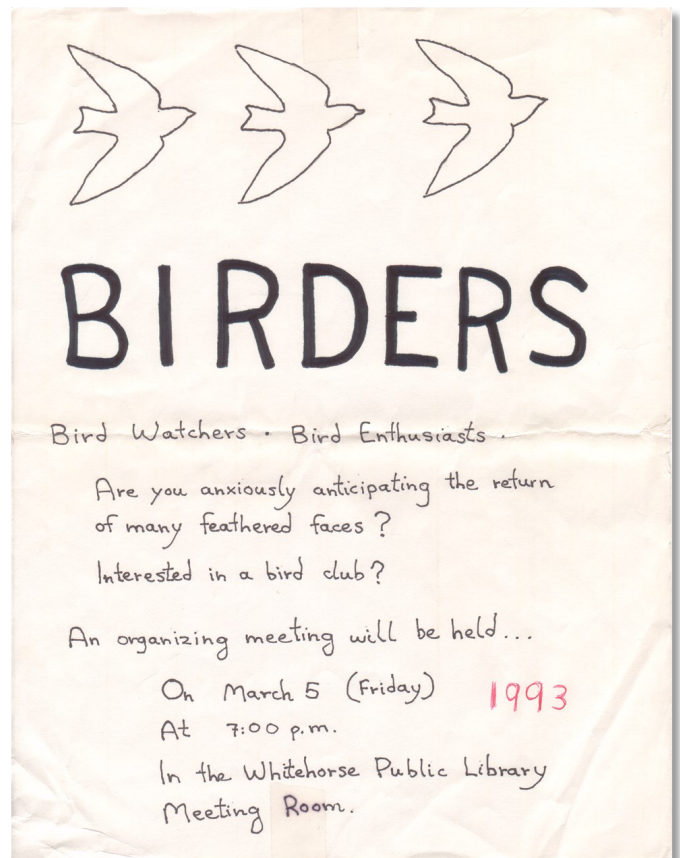 BIRDERS
Bird Watchers · Bird Enthusiasts ·
Are you anxiously anticipating the return
of many feathered faces?
Interested in a bird club?
An organizing meeting will be held...
On March 5 (Friday) 1993
At 7:00 p.m.
In the Whitehorse Public Library
Meeting Room.